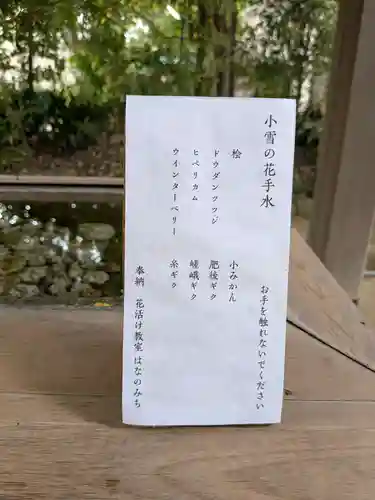 小雪の花手水
お手を触れないでください
桧 小みかん
ドウダンツツジ 肥後ギク
ヒペリカム 嵯峨ギク
ウインターベリー 糸ギク
奉納 花活け教室はなのみち